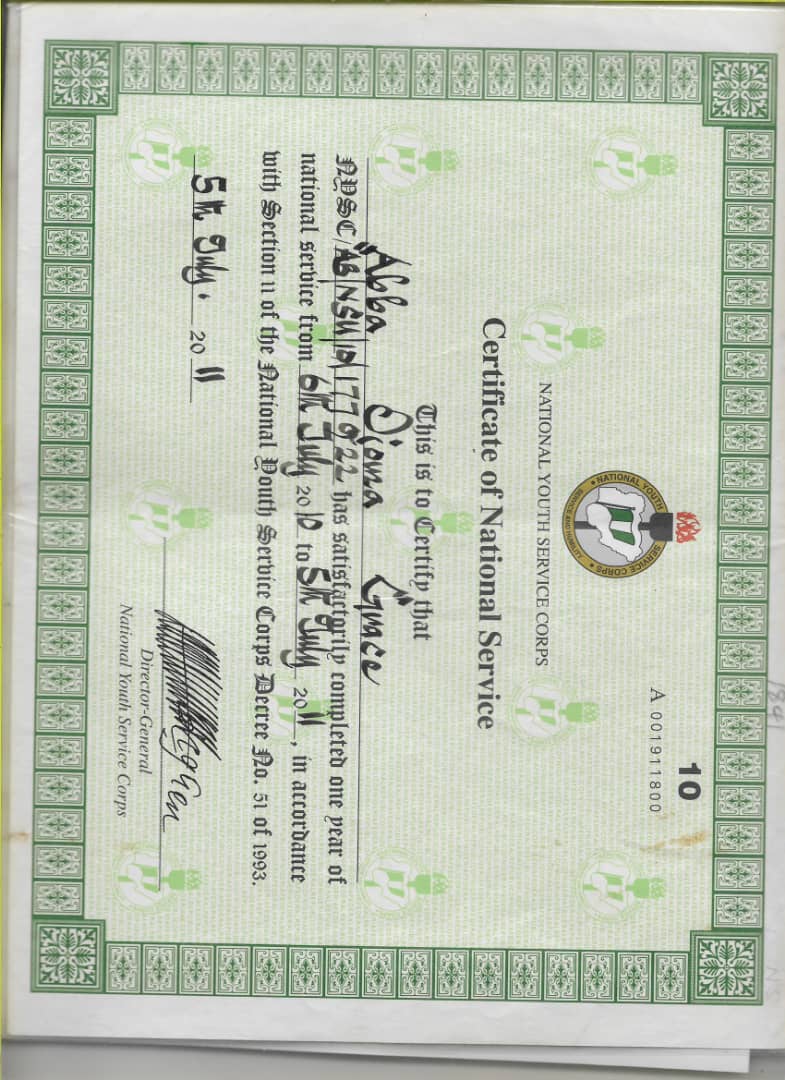 10
A 001911800
NATIONAL YOUTH
SERVICE CORPS
SERVICE AND HUMILITY
NATIONAL YOUTH SERVICE CORPS
Certificate of National Service
This is to Certify that
"Abba Ojoma Grace"
NYSC/AB/NSU/10/177922 has satisfactorily completed one year of
national service from 6th July 2010 to 5th July 2011, in accordance
with Section 11 of the National Youth Service Corps Decree No. 51 of 1993.
5th July. 2011
Director-General
National Youth Service Corps